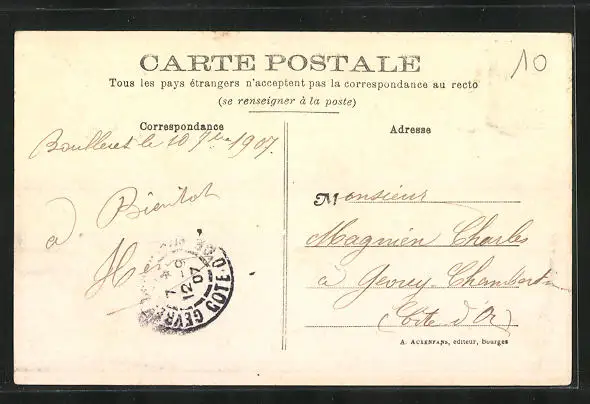 CARTE POSTALE
10
Tous les pays étrangers n'acceptent pas la correspondance au recto
(se renseigner à la poste)
Correspondance
Boulleret le 10 7bre 1907.
à Bientôt
Adresse
Monsieur
Magnien Charles
à Gevrey-Chambertin
(Côte d'Or)
A. AUXENFANS, éditeur, Bourges
GEVRE
COTE-D'OR
12 - 9
07